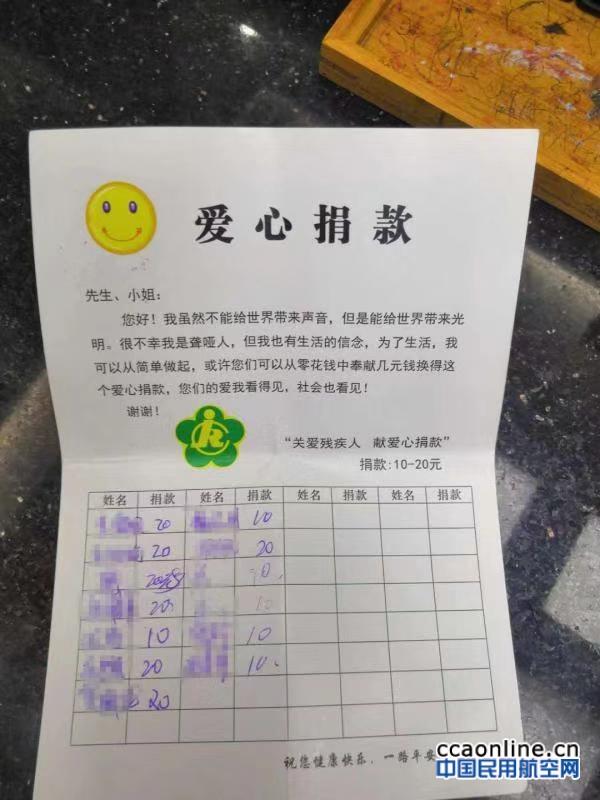 爱心捐款
先生、小姐:
您好！我虽然不能给世界带来声音，但是能给世界带来光
明。很不幸我是聋哑人，但我也有生活的信念，为了生活，我
可以从简单做起，或许您们可以从零花钱中奉献几元钱换得这
个爱心捐款，您们的爱我看得见，社会也看见！
谢谢！
“关爱残疾人 献爱心捐款”
捐款:10-20元
姓名 捐款 姓名 捐款 姓名 捐款 姓名 捐款
20 10
20 20
20
20 10
10 10
20 10
20
祝您健康快乐，一路平安
ccaonline.cn
中国民用航空网